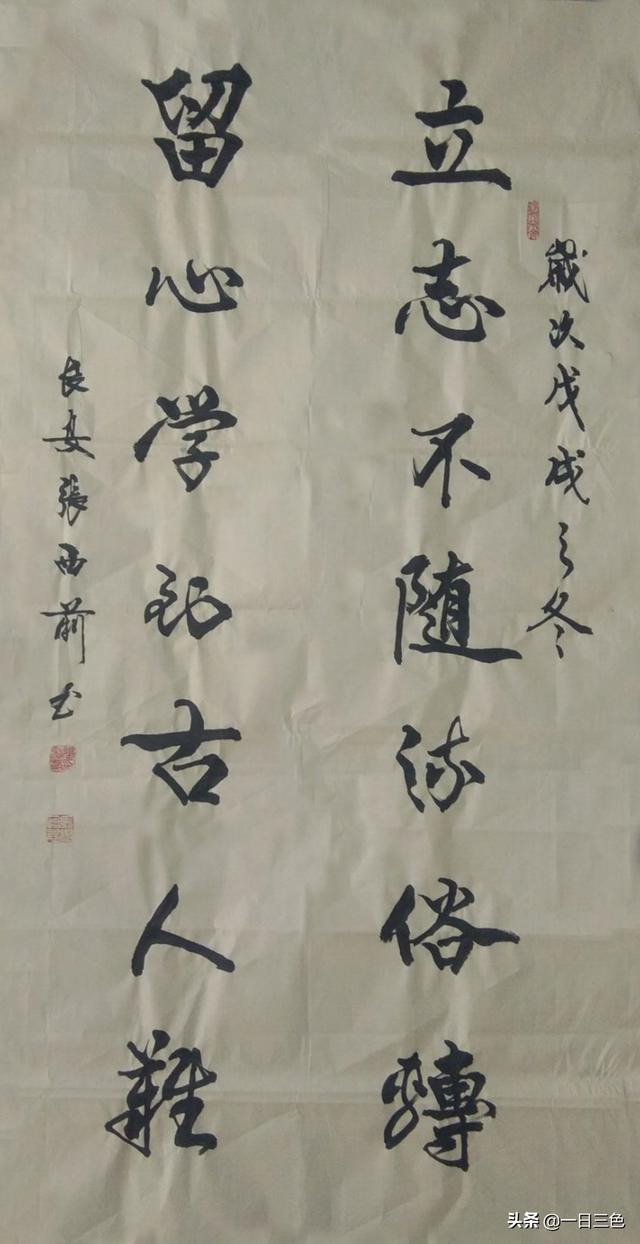 歲次戊戌之冬
立志不随流俗轉
留心学到古人難
長安張西前书
头条 @一日三色